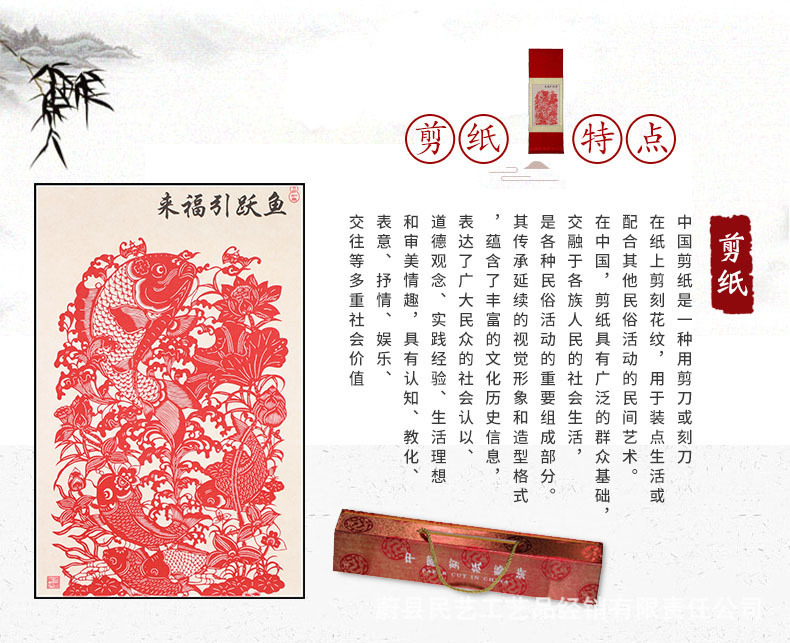 剪纸特点
剪纸
中国剪纸是一种用剪刀或刻刀
在纸上剪刻花纹，用于装点生活或
配合其他民俗活动的民间艺术。
在中国，剪纸具有广泛的群众基础，
交融于各族人民的社会生活，
是各种民俗活动的重要组成部分。
其传承延续的视觉形象和造型格式
，蕴含了丰富的文化历史信息，
表达了广大民众的社会认以、
道德观念、实践经验、生活理想
和审美情趣，具有认知、教化、
表意、抒情、娱乐、
交往等多重社会价值
来福引跃鱼
中国剪纸
CUT IN CH
蔚县民艺工艺品经销有限责任公司